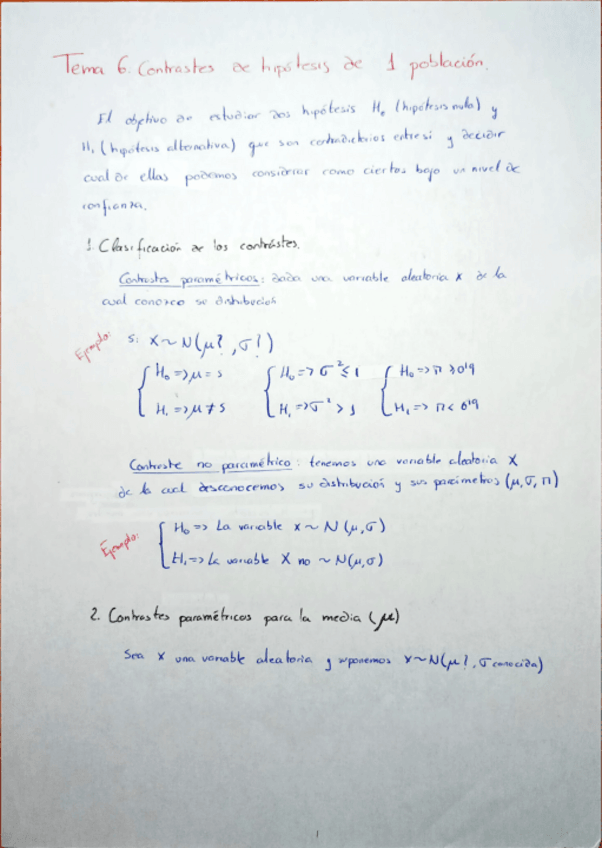 Tema 6. Contrastes de hipótesis de 1 población.
El objetivo de estudiar dos hipótesis H₀ (hipótesis nula) y
H₁ (hipótesis alternativa) que son contradictorios entre si y decidir
cual de ellas podemos considerar como ciertas bajo un nivel de
confianza.
1. Clasificación de los contrástes.
Contrastes paramétricos: dada una variable aleatoria x de la
cual conozco su distribución
Ejemplo: Si X~N(μ?, σ?)
{ H₀ => μ = 5 { H₀ => σ² ≤ 1 { H₀ => π ≥ 0'9
H₁ => μ ≠ 5 H₁ => σ² > 1 H₁ => π < 0'9
Contraste no paramétrico: tenemos una variable aleatoria X
de la cual desconocemos su distribución y sus parámetros (μ, σ, π)
Ejemplo: { H₀ => La variable x ~ N(μ, σ)
H₁ => La variable X no ~ N(μ, σ)
2. Contrastes paramétricos para la media (μ)
Sea x una variable aleatoria y suponemos X~N(μ?, σ conocida)
1